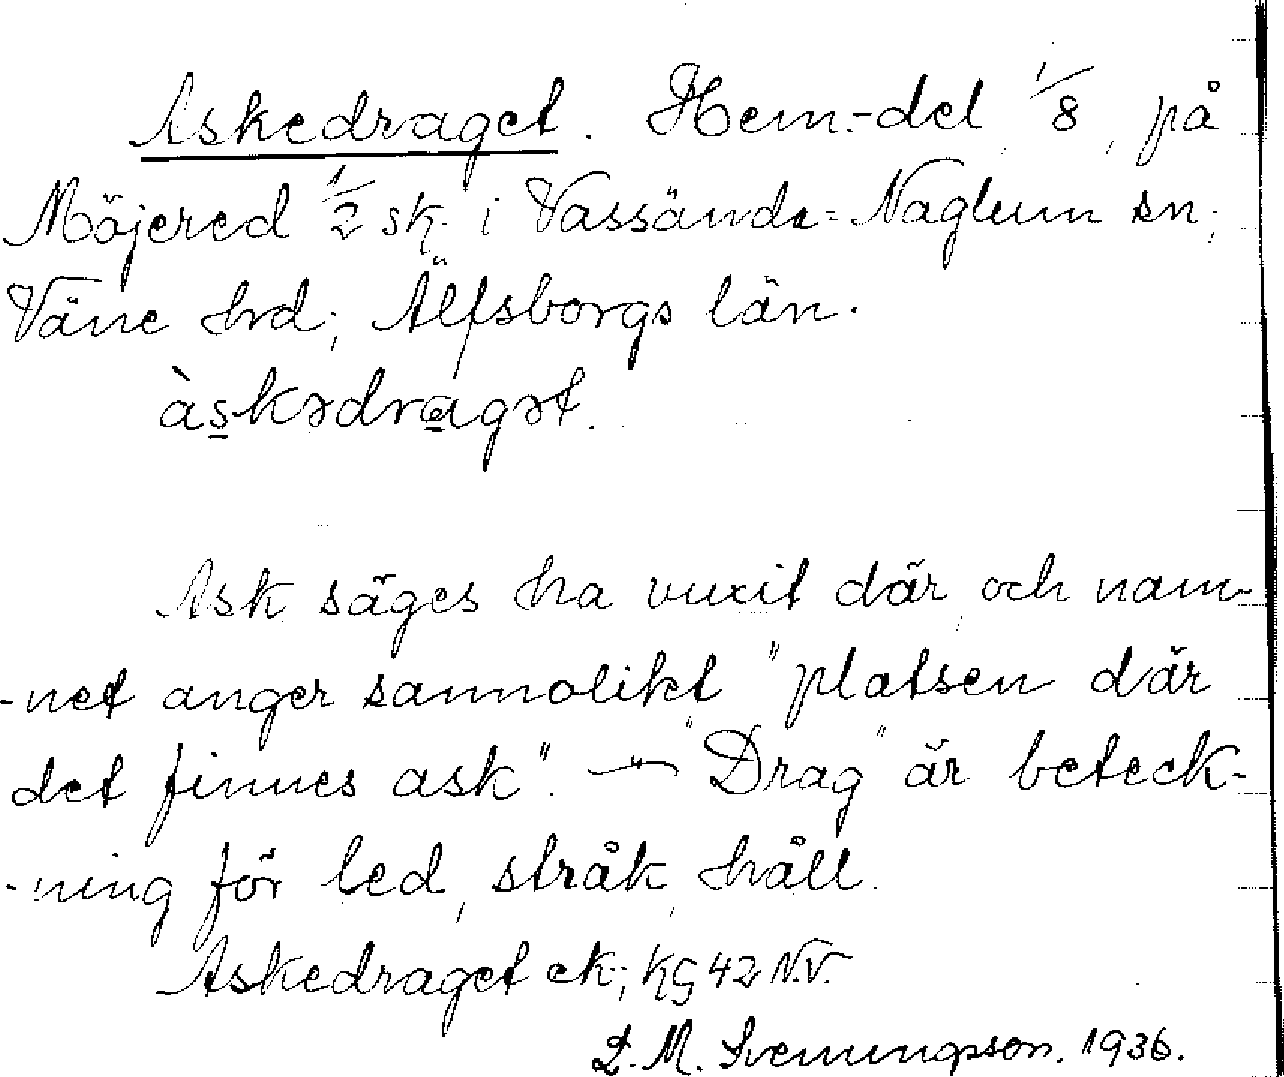 Askedraget. Hem.-del 1/8, på
Möjered 1/2 sk. i Vassända-Naglum sn;
Väne hrd; Älfsborgs län.
àskədragət.
Ask säges ha vuxit där, och nam-
-net anger sannolikt "platsen där
det finnes ask". — "Drag" är beteck-
-ning för led, stråk, håll.
Askedraget ek; KG 42 N.V.
L. M. Svenungsson. 1936.